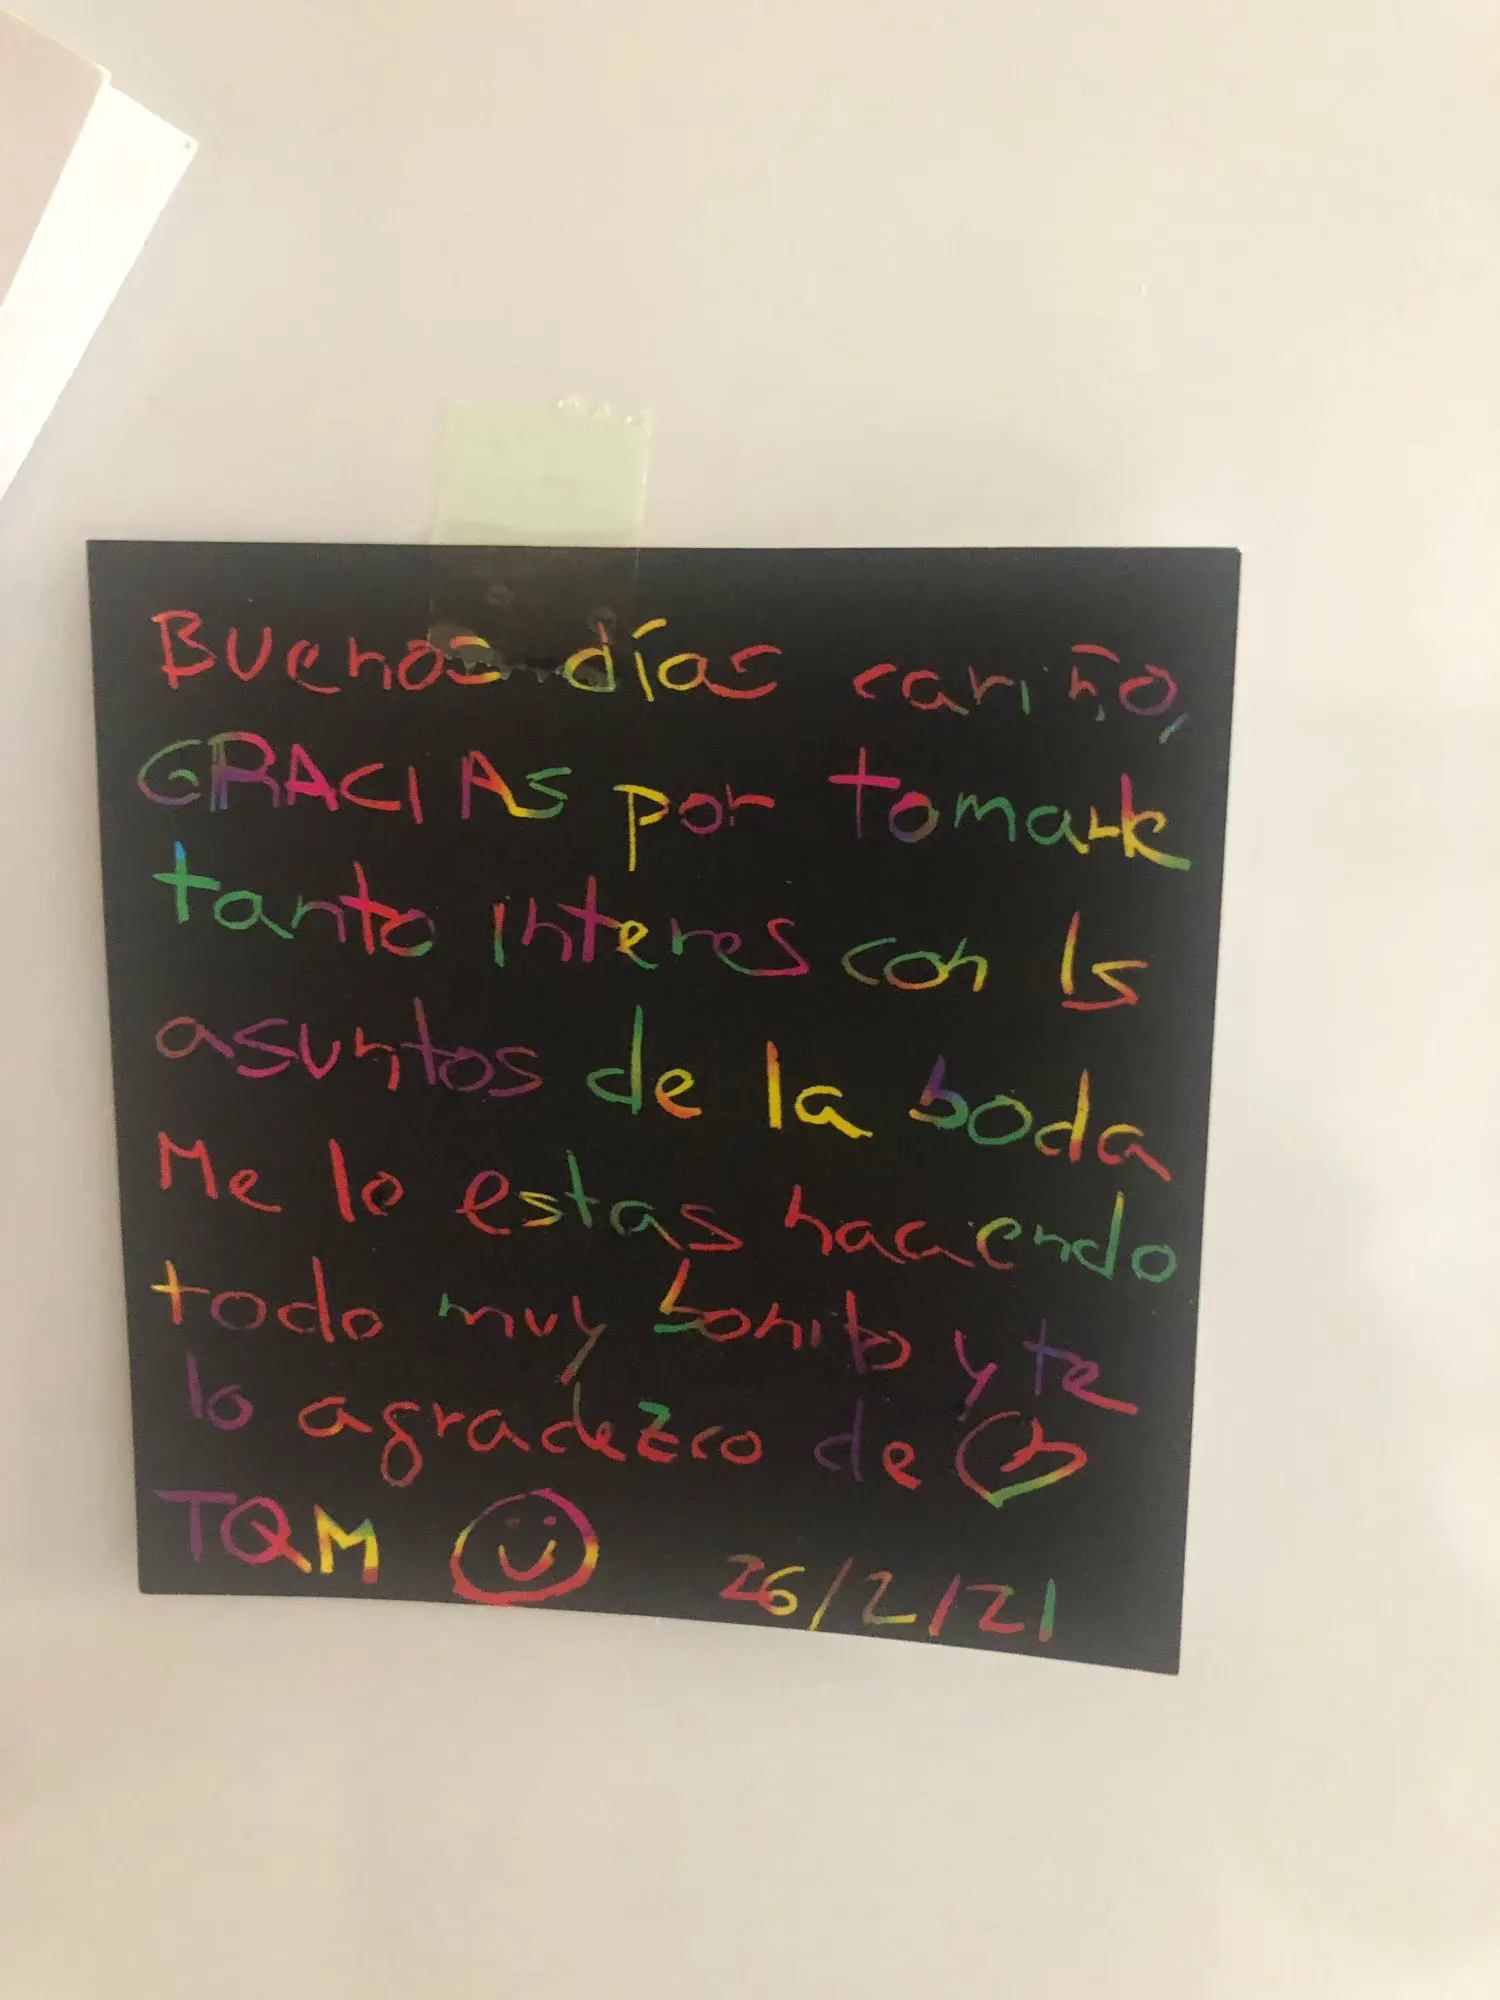 Buenos días cariño,
GRACIAS por tomarte
tanto interes con ls
asuntos de la boda
Me lo estas haciendo
todo muy bonito y te
lo agradezco de
TQM 26/2/21